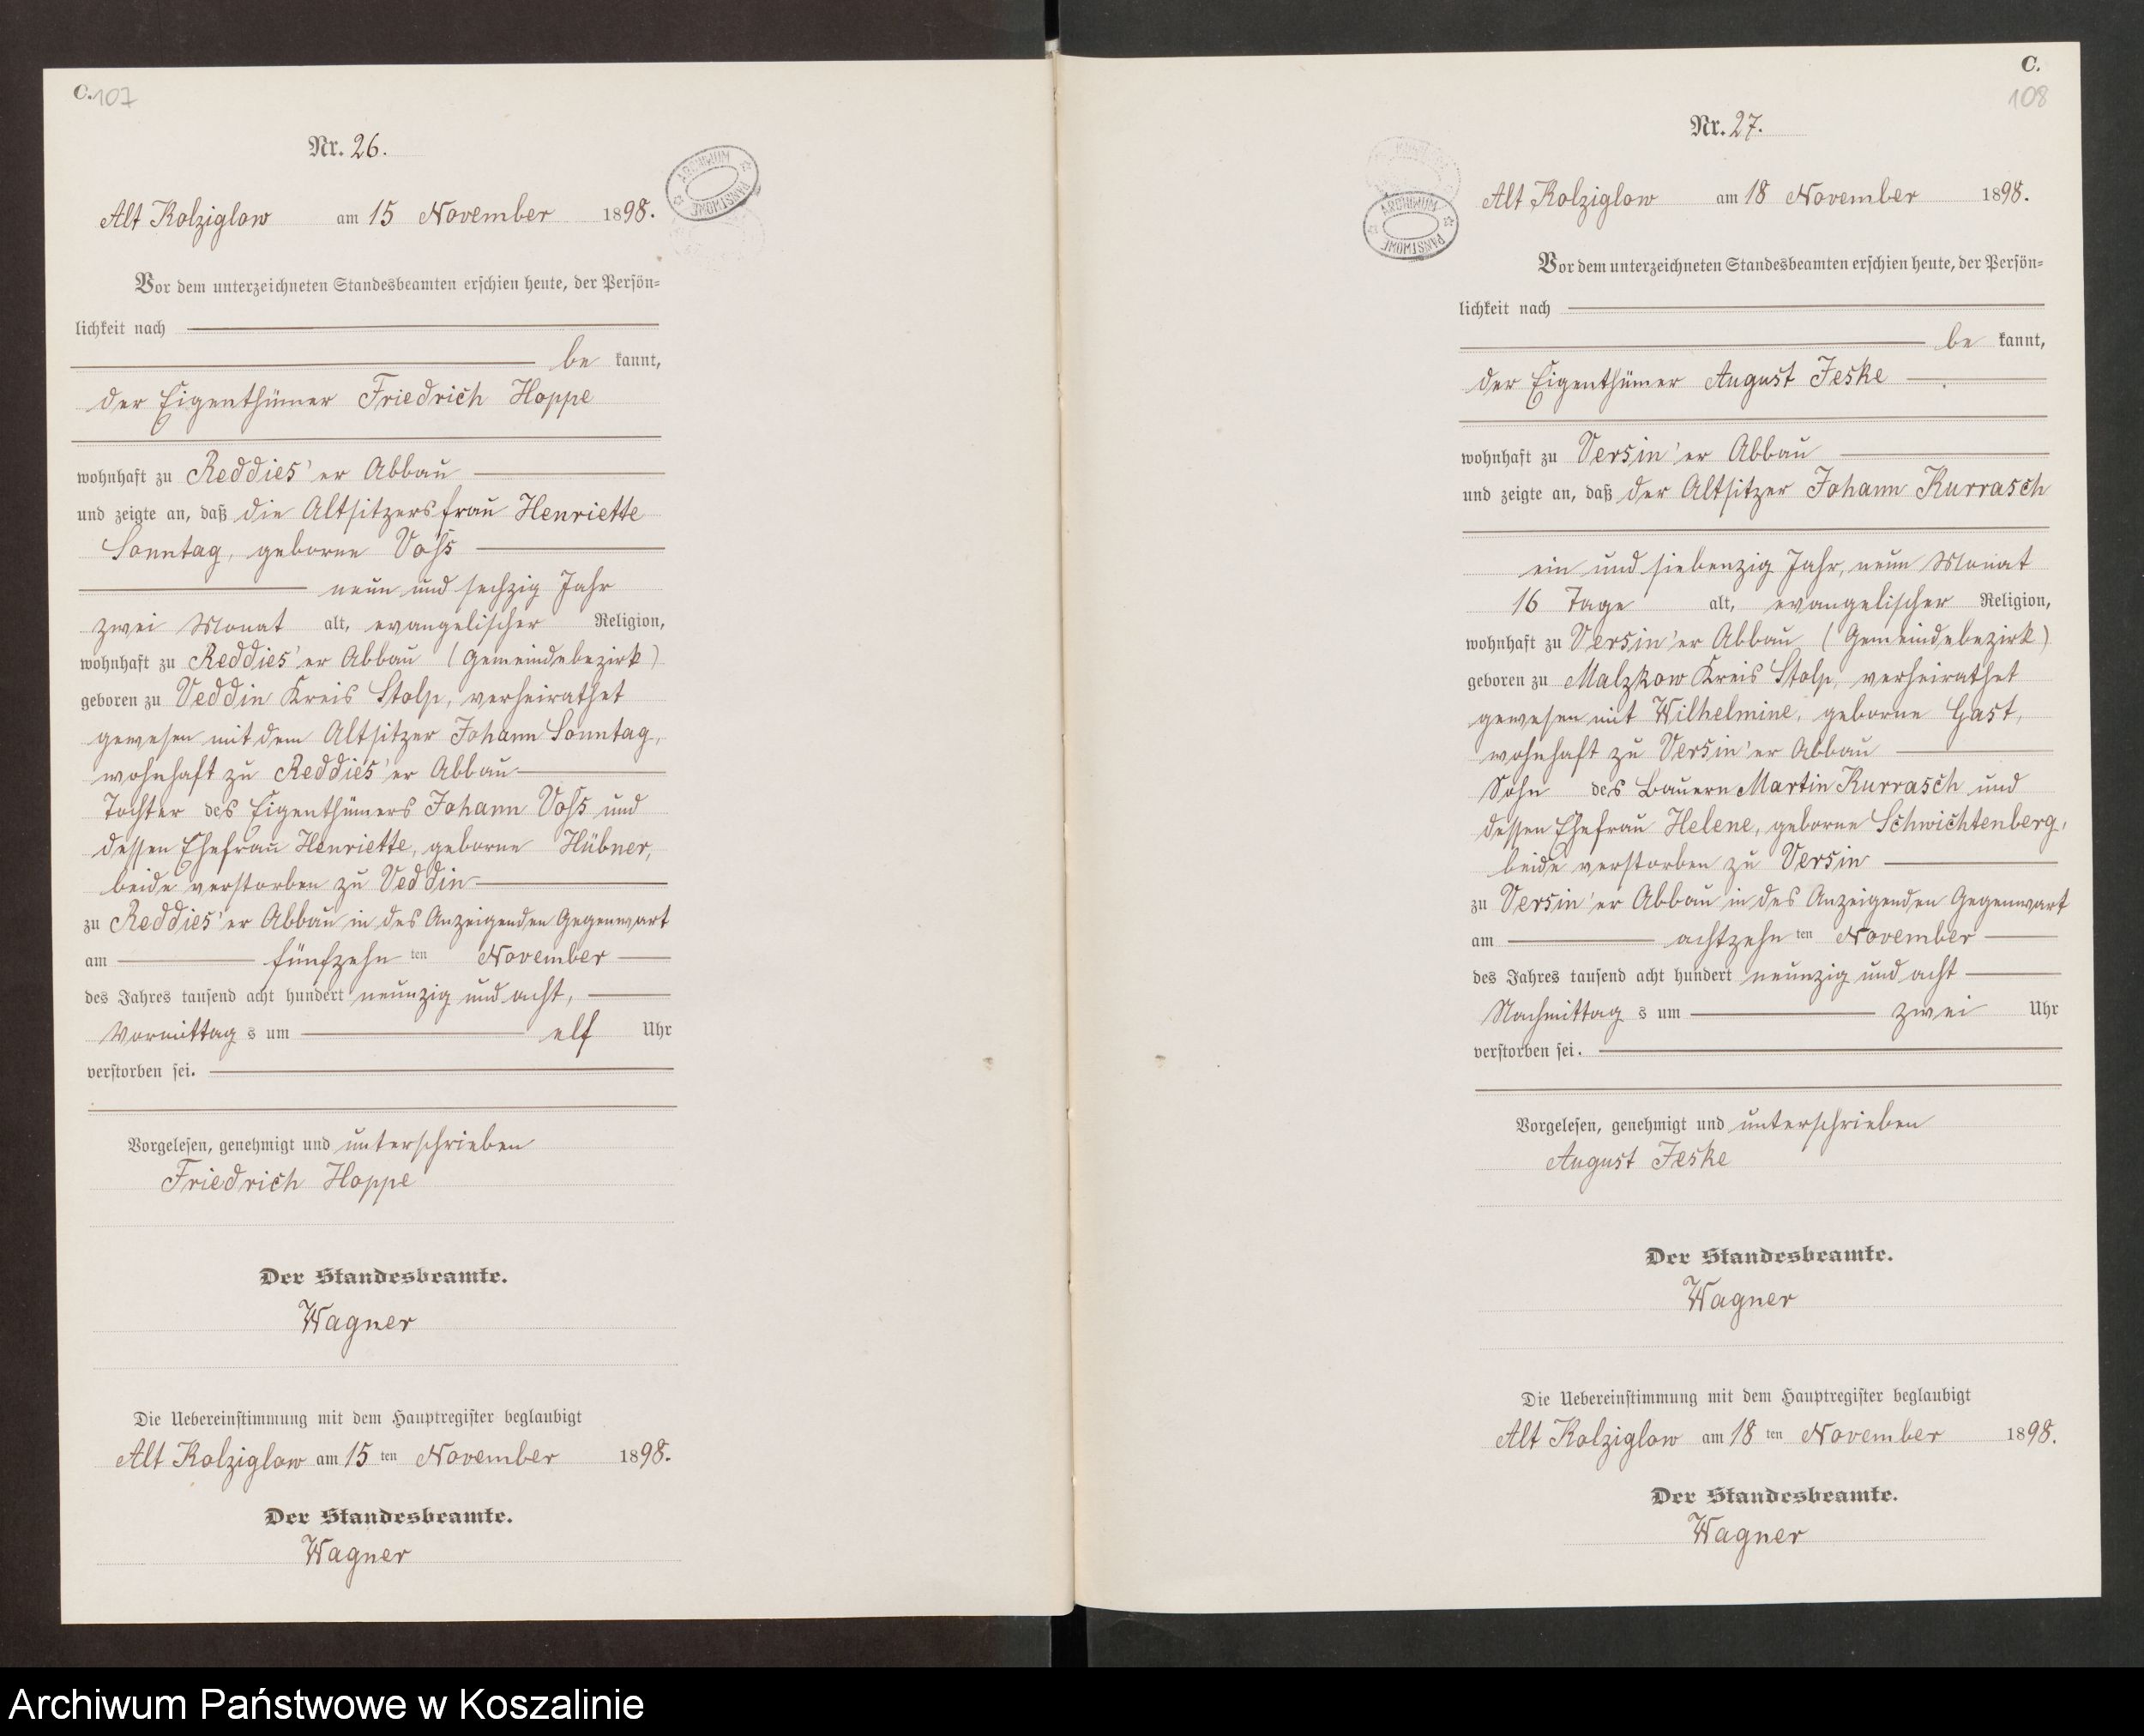 C. 107
Nr. 26.
Alt Kolziglow am 15 November 1898.
ARCHIWUM PAŃSTWOWE
Vor dem unterzeichneten Standesbeamten erschien heute, der Persön=
lichkeit nach
be kannt,
der Eigenthümer Friedrich Hoppe
wohnhaft zu Reddies'er Abbau
und zeigte an, daß die Altsitzersfrau Henriette
Sonntag, geborne Voss
neun und sechzig Jahr
zwei Monat alt, evangelischer Religion,
wohnhaft zu Reddies'er Abbau (Gemeindebezirk)
geboren zu Veddin Kreis Stolp, verheirathet
gewesen mit dem Altsitzer Johann Sonntag,
wohnhaft zu Reddies'er Abbau
Tochter des Eigenthümers Johann Voss und
dessen Ehefrau Henriette, geborne Hübner,
beide verstorben zu Veddin
zu Reddies'er Abbau in des Anzeigenden Gegenwart
am fünfzehn ten November
des Jahres tausend acht hundert neunzig und acht,
Vormittag s um elf Uhr
verstorben sei.
Vorgelesen, genehmigt und unterschrieben
Friedrich Hoppe
Der Standesbeamte.
Wagner
Die Uebereinstimmung mit dem Hauptregister beglaubigt
Alt Kolziglow am 15 ten November 1898.
Der Standesbeamte.
Wagner
C.
108
Nr. 27.
Alt Kolziglow am 18 November 1898.
ARCHIWUM PAŃSTWOWE
Vor dem unterzeichneten Standesbeamten erschien heute, der Persön=
lichkeit nach
be kannt,
der Eigenthümer August Jeske
wohnhaft zu Versin'er Abbau
und zeigte an, daß der Altsitzer Johann Kurrasch
ein und siebenzig Jahr, neun Monat
16 Tage alt, evangelischer Religion,
wohnhaft zu Versin'er Abbau (Gemeindebezirk)
geboren zu Malzkow Kreis Stolp, verheirathet
gewesen mit Wilhelmine, geborne Gast,
wohnhaft zu Versin'er Abbau
Sohn des Bauern Martin Kurrasch und
dessen Ehefrau Helene, geborne Schwichtenberg,
beide verstorben zu Versin
zu Versin'er Abbau in des Anzeigenden Gegenwart
am achtzehn ten November
des Jahres tausend acht hundert neunzig und acht
Nachmittag s um zwei Uhr
verstorben sei.
Vorgelesen, genehmigt und unterschrieben
August Jeske
Der Standesbeamte.
Wagner
Die Uebereinstimmung mit dem Hauptregister beglaubigt
Alt Kolziglow am 18 ten November 1898.
Der Standesbeamte.
Wagner
Archiwum Państwowe w Koszalinie